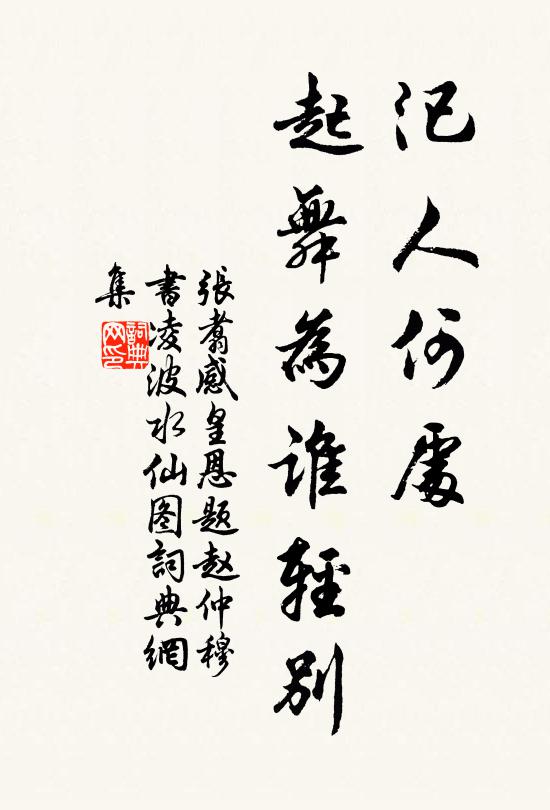 汜人何處
起舞為誰輕別
張翥感皇恩題赵仲穆
書凌波水仙图詞典網
集
詞典
网印